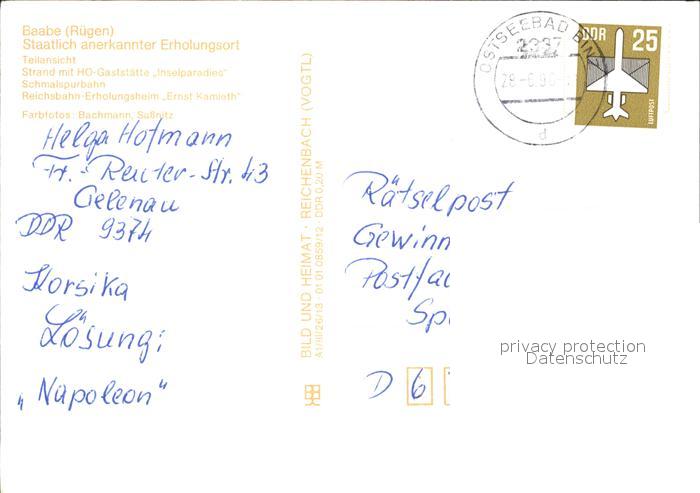 Baabe (Rügen)
Staatlich anerkannter Erholungsort
Teilansicht
Strand mit HO-Gaststätte „Inselparadies"
Schmalspurbahn
Reichsbahn-Erholungsheim „Ernst Kamieth"
Farbfotos: Bachmann, Saßnitz
Helga Hofmann
Fr.-Reuter-Str. 43
Gelenau
DDR 9374
Korsika
Lösung:
„Napoleon"
BILD UND HEIMAT · REICHENBACH (VOGTL)
A1/III/26/13 · 01 01 0859/12 · DDR 0,20 M
OSTSEEBAD BINZ
2337
28-6.90
d
DDR 25
LUFTPOST
Rätselpost
Gewinn
Postfac
Spi
D 6
privacy protection
Datenschutz